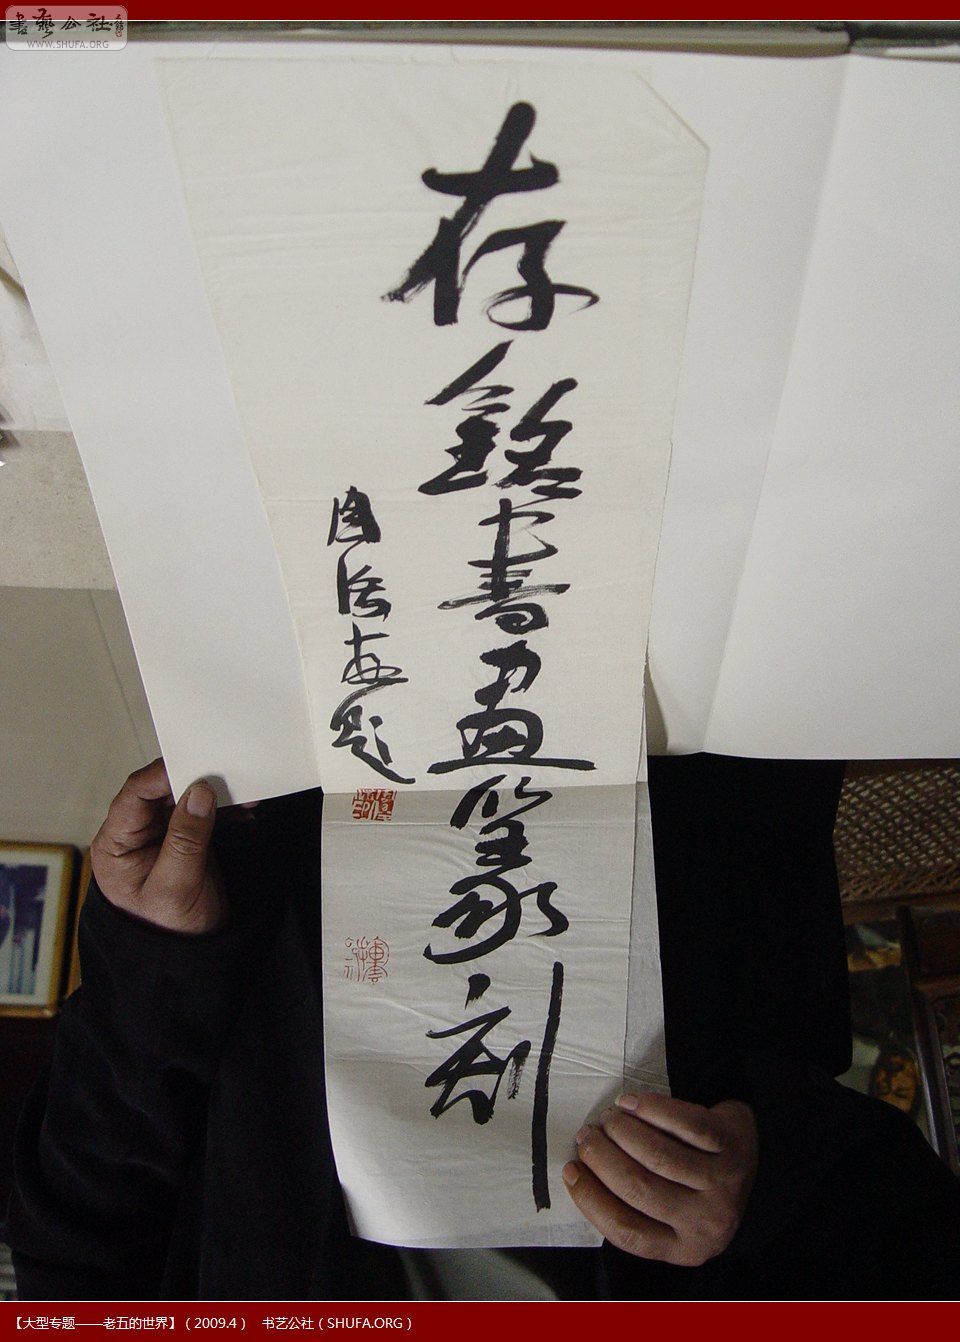 書藝公社
WWW.SHUFA.ORG
存銘書畫篆刻
周浩然題
【大型专题——老五的世界】（2009.4） 书艺公社（SHUFA.ORG）